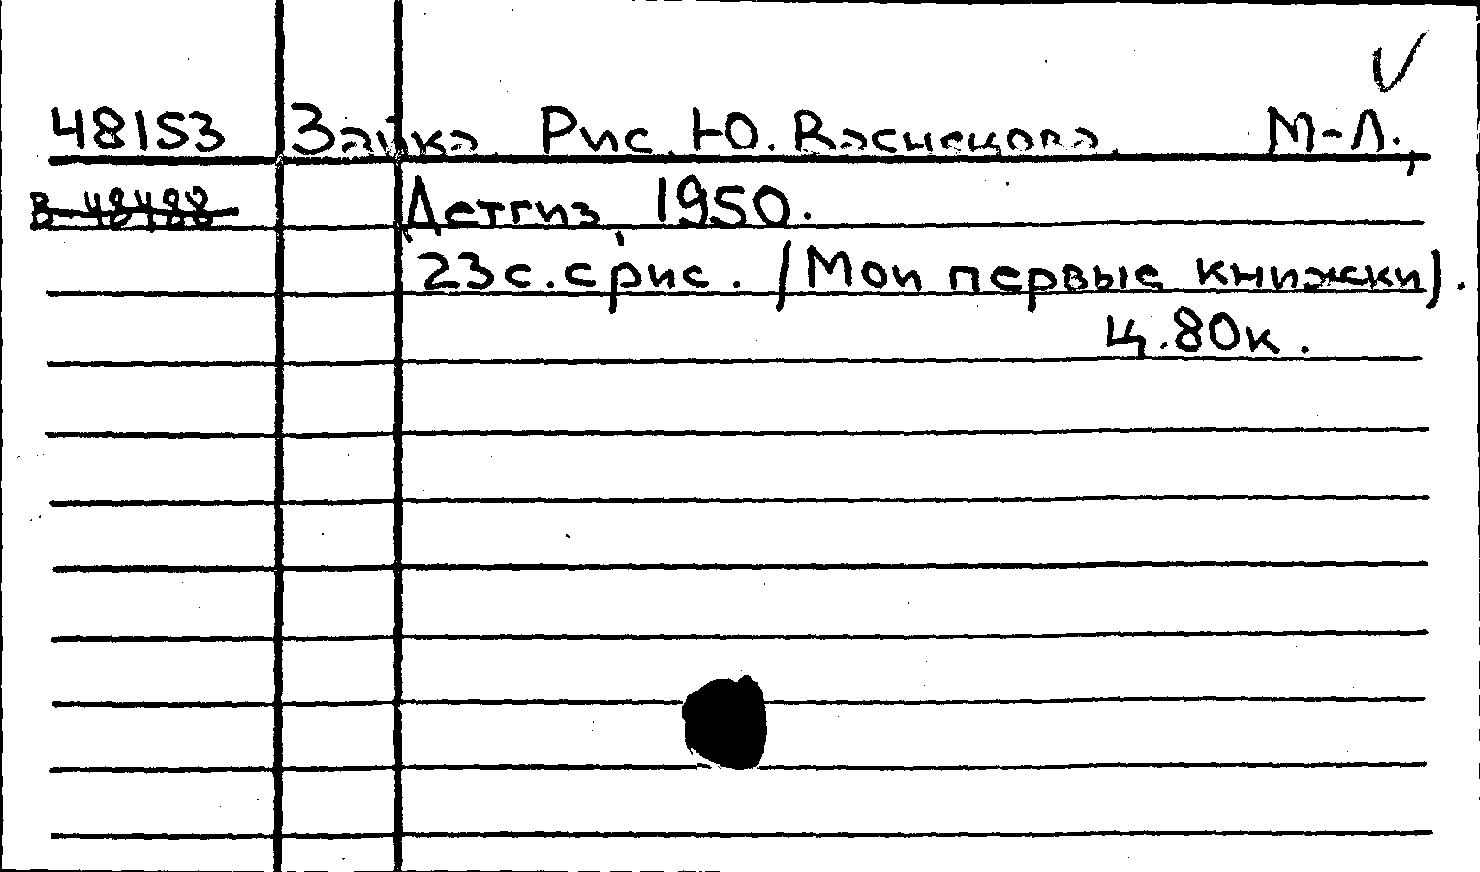 48153 Зайка. Рис. Ю. Васнецова. М-Л.,
В-48488 Детгиз, 1950.
23 с. с рис. (Мои первые книжки).
Ц. 80 к.